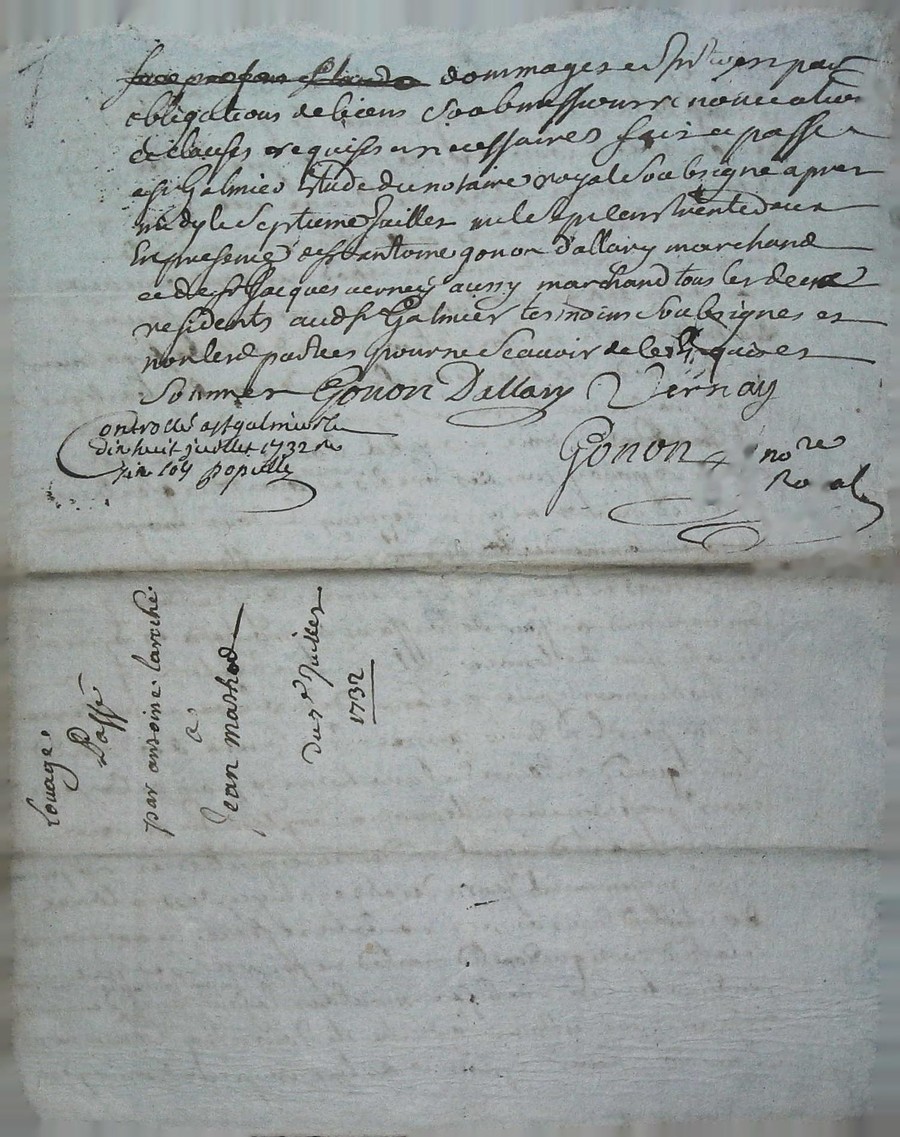 dommages et par
obligations de biens soubmissions renonciations
et clauses requises et necessaires fait et passé a
a st Galmier Etude du notaire royal Soubsigné apres
midy le Septieme Juillet mil Sept cens trente deux
En presence de sr antoine gonon d'allary marchand
et de sr Jacques verney aussy marchand tous les deux
residents audt st Galmier tesmoins Soubsignes et
non lesd parties pour ne scavoir de ce requises et
Sommes Gonon Dallary Vernay
Controllé a st galmier le
dix huit juillet 1732 Re
Gonon nore
Roal
Louage
Passé
par antoine laroche
a
Jean mathod
du 7e Juillet
1732